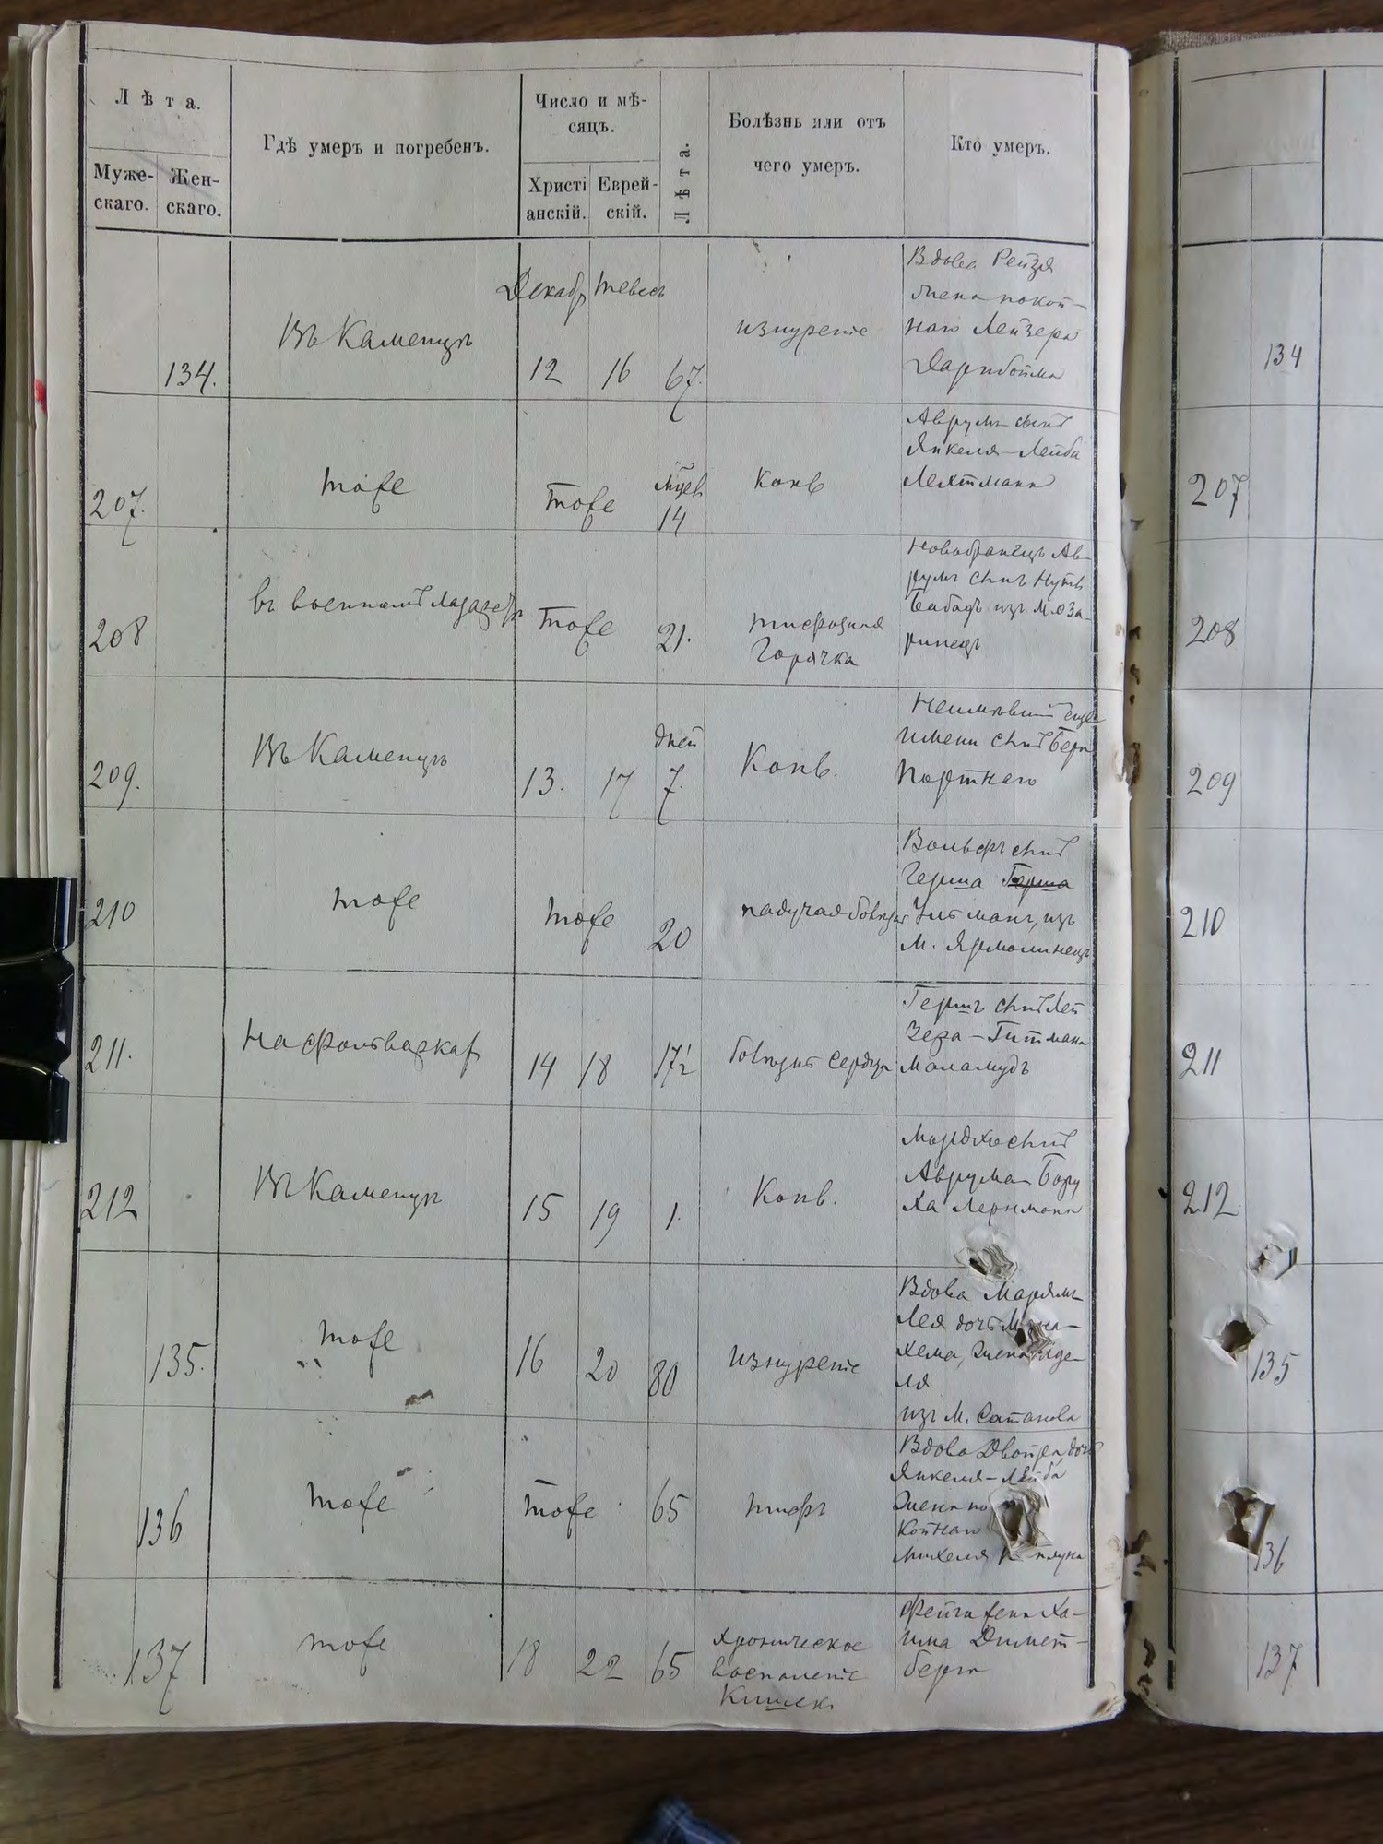 Лѣта.
Муже-
скаго.
Жен-
скаго.
Гдѣ умеръ и погребенъ.
Число и мѣ-
сяцъ.
Христі
анскій.
Еврей-
скій.
Лѣта.
Болѣзнь или отъ
чего умеръ.
Кто умеръ.
134.
Въ Каменцѣ
Декабр
12
Тевесъ
16
67.
изнуреніе
Вдова Рейзя
жена покой-
наго Лейзера
134
207.
тоже
тоже
мѣсяцев
14
Конв
Аврумъ сынъ
Янкеля-Лейба
Лехтмана
207
208
въ военномъ лазаретѣ
тоже
21.
тифозная
Горячка
новобранецъ Ав-
румъ сынъ
изъ
208
209.
Въ Каменцѣ
13.
17
дней
7.
Конв.
Неимѣвшій еще
имени сынъ Бера
Портнаго
209
210
тоже
тоже
20
падучая болѣзнь
Вольфъ сынъ
Герша
изъ
М. Ярмолинецъ
210
211.
На фольваркахъ
14
18
17½
болѣзнь сердца
Гершъ сынъ Лей
зера-Гитмана
Маламудъ
211
212
Въ Каменцѣ
15
19
1.
Конв.
Мордхо сынъ
Аврума Бору
ха Лернмана
212
135.
тоже
16
20
80
изнуреніе
Вдова Марьямъ-
Лея дочь
хема, жена
ля
изъ М. Сатанова
135
136
тоже
тоже
65
тифъ
Вдова Двойра дочь
Янкеля-Лейба
жена по
койнаго
Михеля
136
137
тоже
18
22
65
хроническое
воспаленіе
Кишекъ
Фейга жена Ха-
има Димет-
берга
137